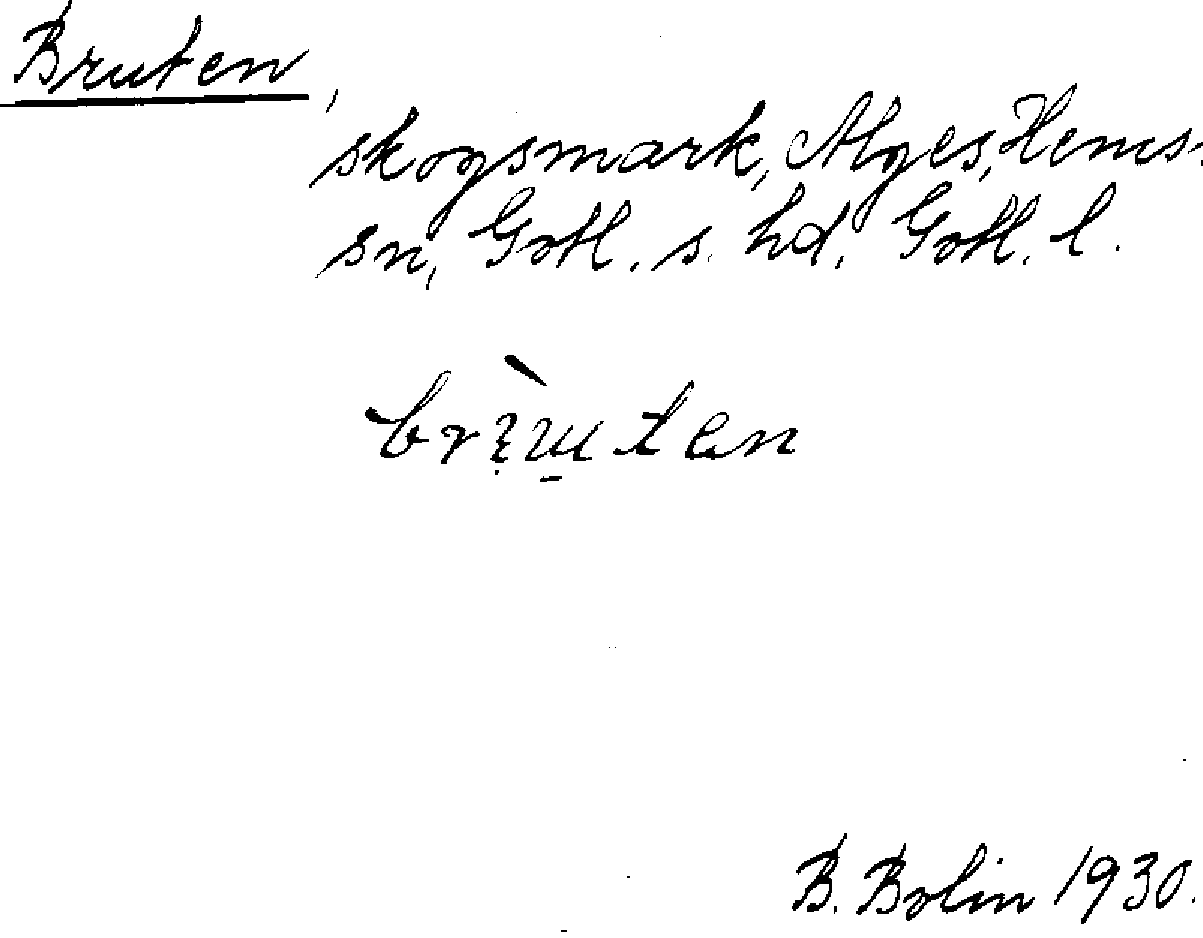 Bruten,
skogsmark, Alges, Hemse
sn, Gotl. s. hd, Gotl. l.
B. Bolin 1930.